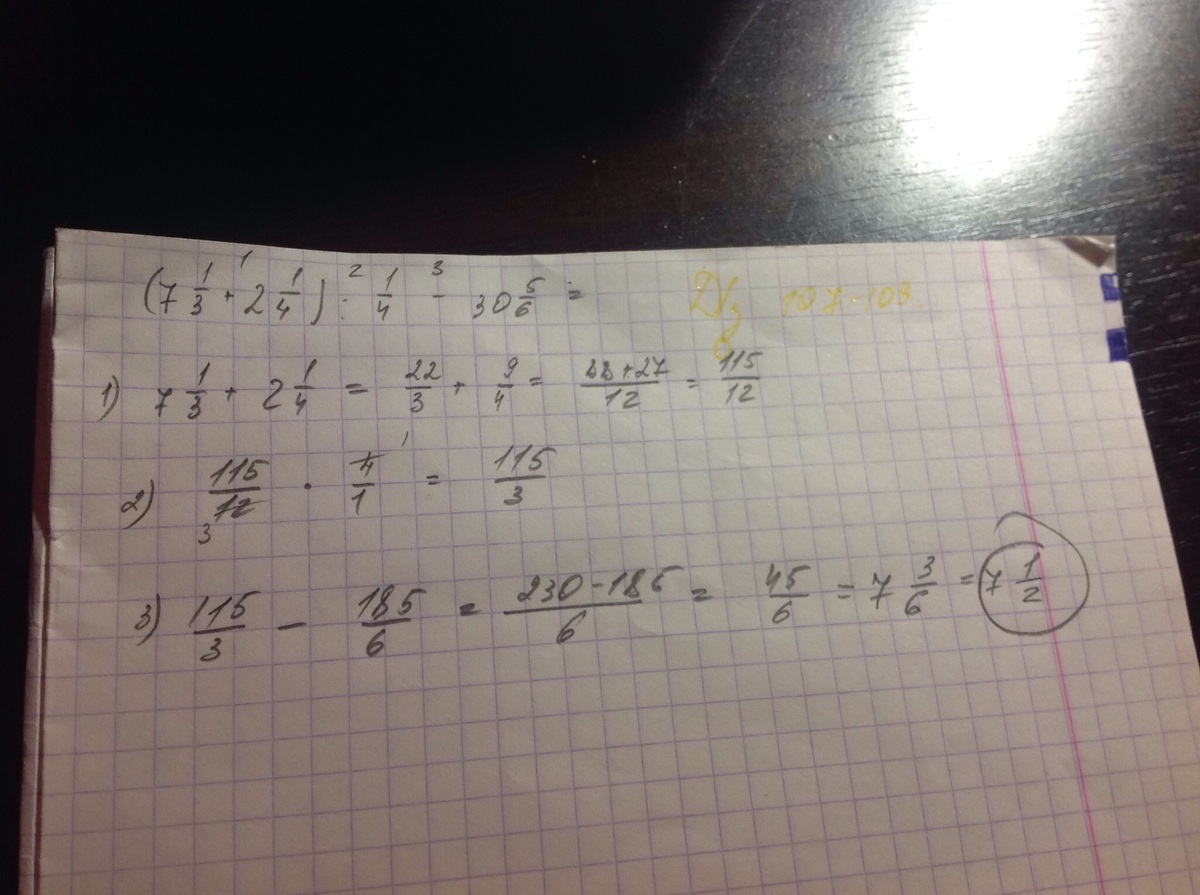 (7 1/3 + 2 1/4) : 1/4 - 30 5/6 =
1 2 3
Д/з 107-109
1) 7 1/3 + 2 1/4 = 22/3 + 9/4 = 88+27/12 = 115/12
2) 115/12 · 4/1 = 115/3
3 1
3) 115/3 - 185/6 = 230-185/6 = 45/6 = 7 3/6 = 7 1/2